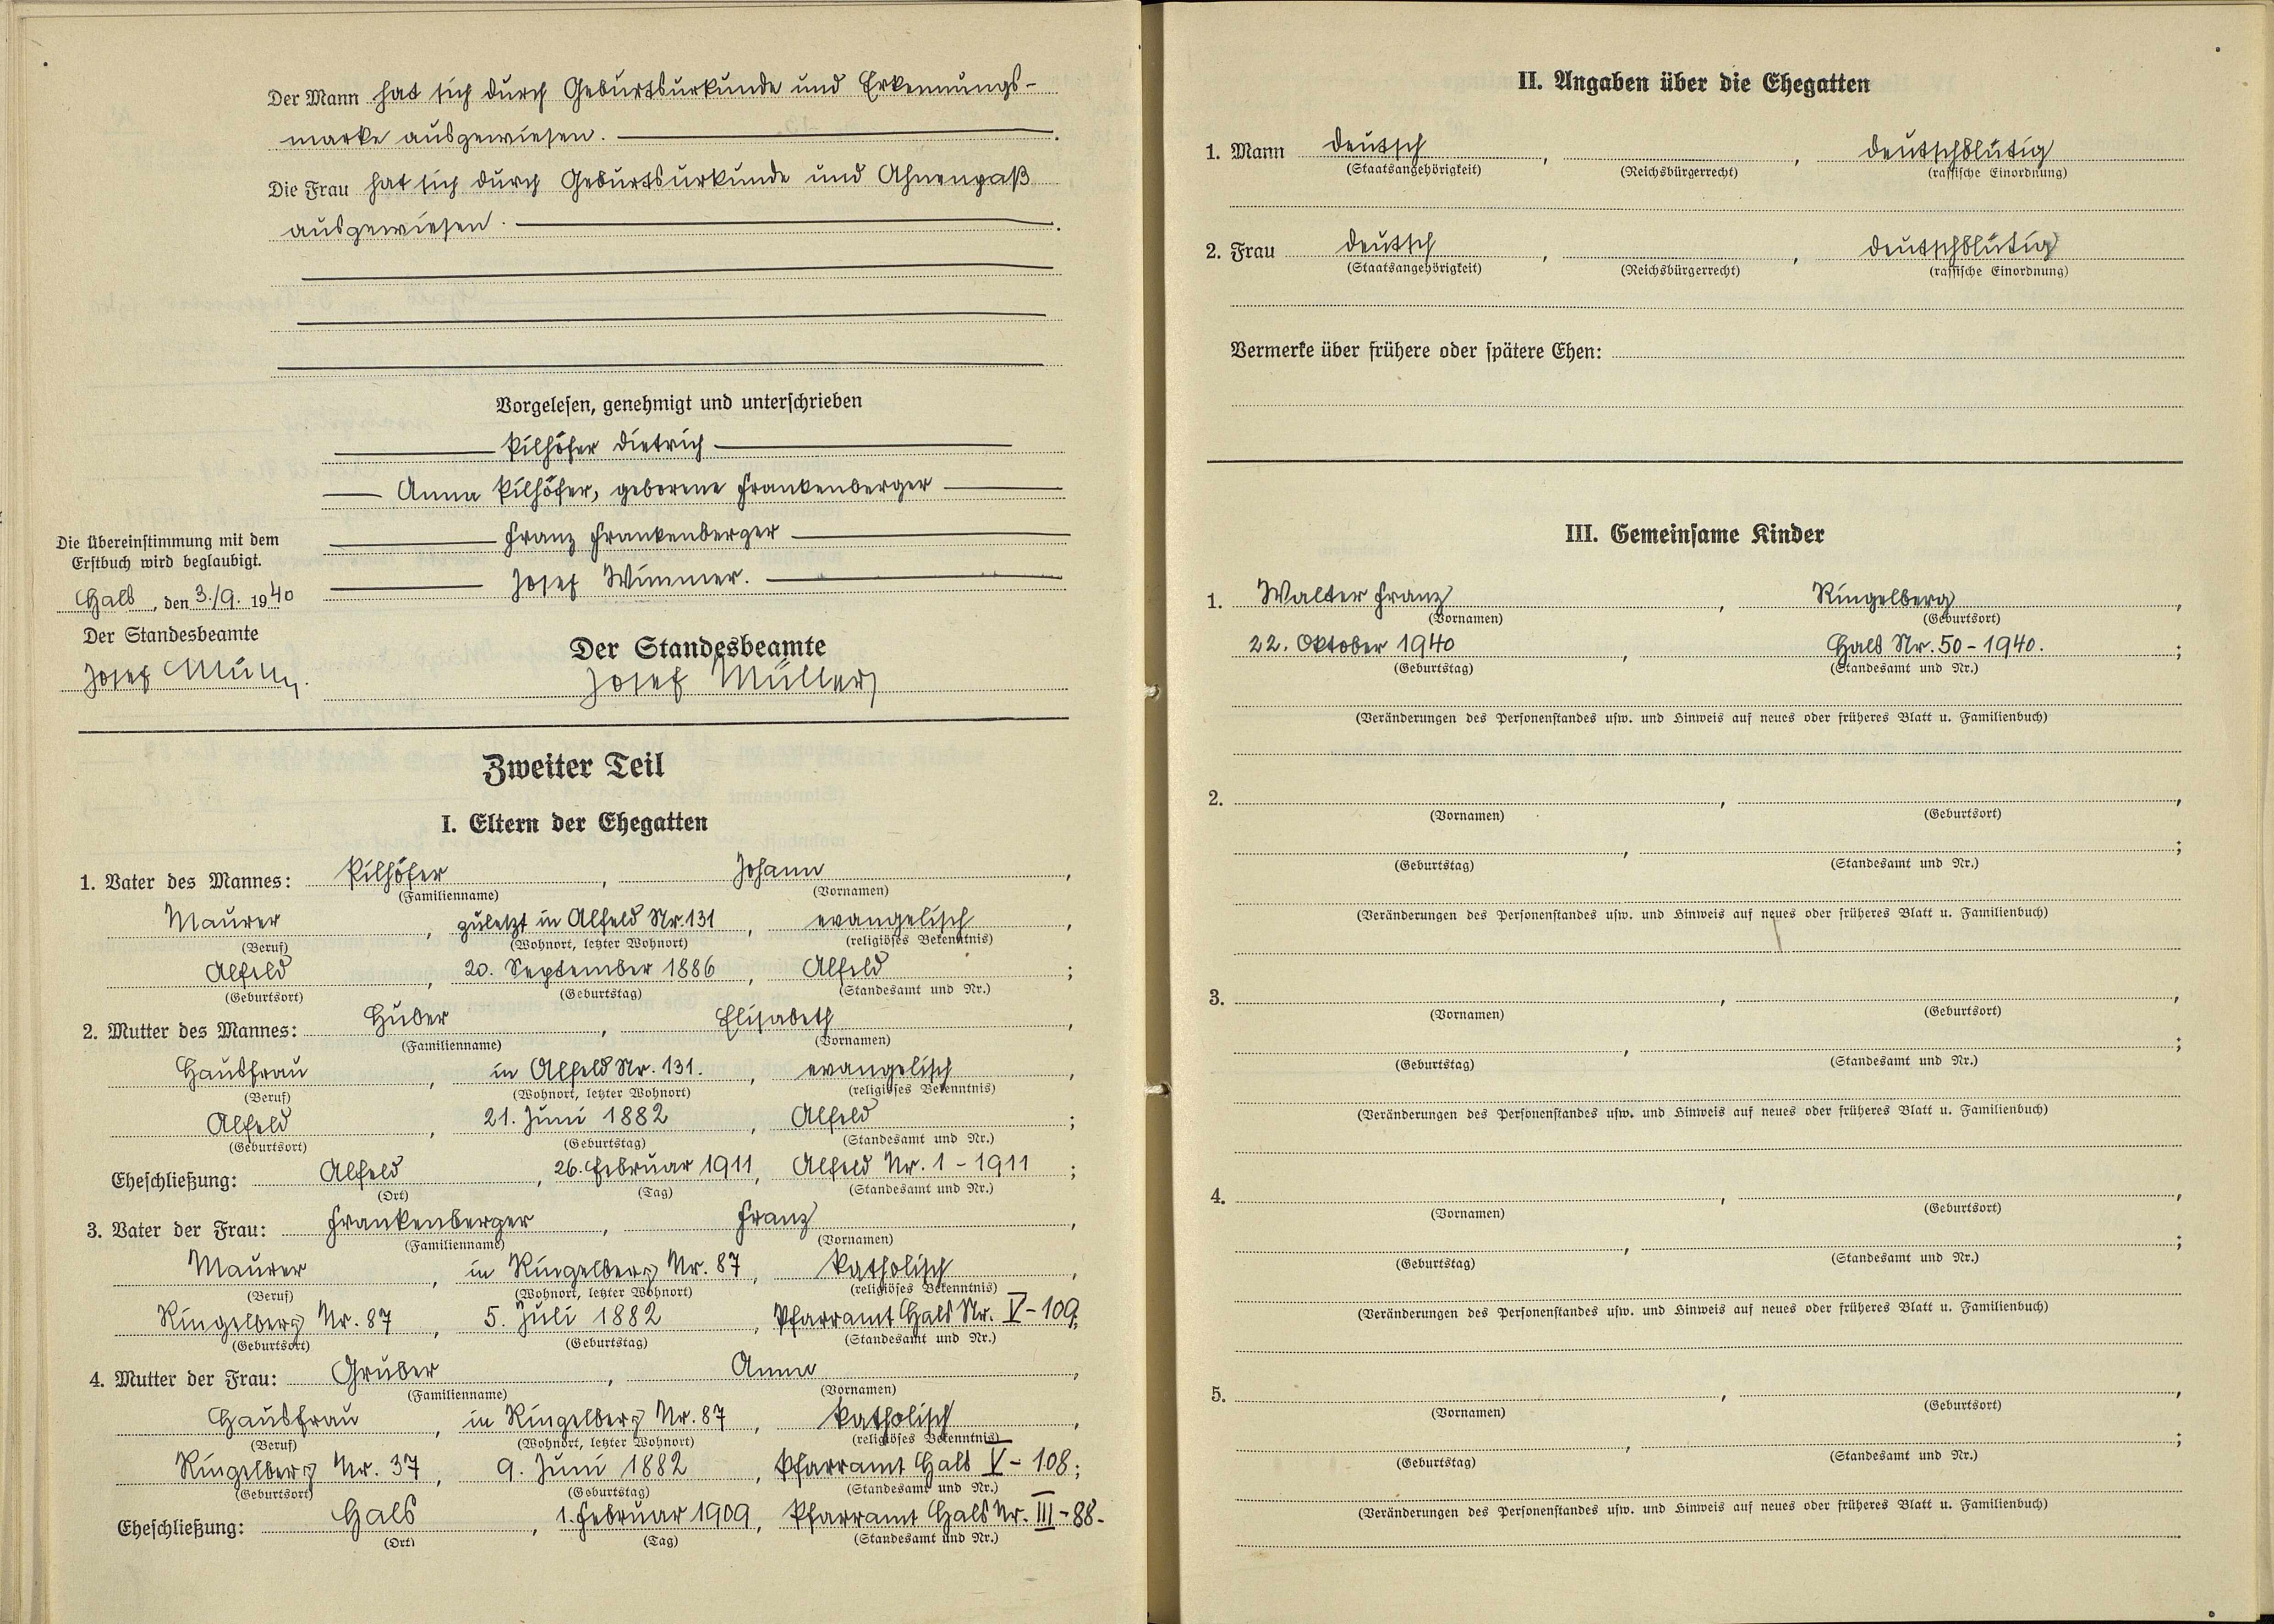 Der Mann hat sich durch Geburtsurkunde und Erkennungs-
marke ausgewiesen.
Die Frau hat sich durch Geburtsurkunde und Ahnenpaß
ausgewiesen.
Vorgelesen, genehmigt und unterschrieben
Pilhöfer Dietrich
Anna Pilhöfer, geborene Frankenberger
Franz Frankenberger
Josef Wimmer.
Die Übereinstimmung mit dem
Erstbuch wird beglaubigt.
Hals, den 3./9. 1940
Der Standesbeamte
Josef Müller
Der Standesbeamte
Josef Müller
Zweiter Teil
I. Eltern der Ehegatten
1. Vater des Mannes: Pilhöfer, Johann,
(Familienname) (Vornamen)
Maurer, zuletzt in Alfeld Nr. 131, evangelisch,
(Beruf) (Wohnort, letzter Wohnort) (religiöses Bekenntnis)
Alfeld, 20. September 1886, Alfeld;
(Geburtsort) (Geburtstag) (Standesamt und Nr.)
2. Mutter des Mannes: Huber, Elisabeth,
(Familienname) (Vornamen)
Hausfrau, in Alfeld Nr. 131., evangelisch,
(Beruf) (Wohnort, letzter Wohnort) (religiöses Bekenntnis)
Alfeld, 21. Juni 1882, Alfeld;
(Geburtsort) (Geburtstag) (Standesamt und Nr.)
Eheschließung: Alfeld, 26. Februar 1911, Alfeld Nr. 1 - 1911;
(Ort) (Tag) (Standesamt und Nr.)
3. Vater der Frau: Frankenberger, Franz,
(Familienname) (Vornamen)
Maurer, in Ringelberg Nr. 87, katholisch,
(Beruf) (Wohnort, letzter Wohnort) (religiöses Bekenntnis)
Ringelberg Nr. 87, 5. Juli 1882, Pfarramt Hals Nr. V - 109;
(Geburtsort) (Geburtstag) (Standesamt und Nr.)
4. Mutter der Frau: Gruber, Anna,
(Familienname) (Vornamen)
Hausfrau, in Ringelberg Nr. 87, katholisch,
(Beruf) (Wohnort, letzter Wohnort) (religiöses Bekenntnis)
Ringelberg Nr. 37, 9. Juni 1882, Pfarramt Hals V - 108;
(Geburtsort) (Geburtstag) (Standesamt und Nr.)
Eheschließung: Hals, 1. Februar 1909, Pfarramt Hals Nr. III - 88.
(Ort) (Tag) (Standesamt und Nr.)
II. Angaben über die Ehegatten
1. Mann deutsch, , deutschblütig
(Staatsangehörigkeit) (Reichsbürgerrecht) (rassische Einordnung)
2. Frau deutsch, , deutschblütig
(Staatsangehörigkeit) (Reichsbürgerrecht) (rassische Einordnung)
Vermerke über frühere oder spätere Ehen:
III. Gemeinsame Kinder
1. Walter Franz, Ringelberg,
(Vornamen) (Geburtsort)
22. Oktober 1940, Hals Nr. 50 - 1940.;
(Geburtstag) (Standesamt und Nr.)
(Veränderungen des Personenstandes usw. und Hinweis auf neues oder früheres Blatt u. Familienbuch)
2. , ,
(Vornamen) (Geburtsort)
, ;
(Geburtstag) (Standesamt und Nr.)
(Veränderungen des Personenstandes usw. und Hinweis auf neues oder früheres Blatt u. Familienbuch)
3. , ,
(Vornamen) (Geburtsort)
, ;
(Geburtstag) (Standesamt und Nr.)
(Veränderungen des Personenstandes usw. und Hinweis auf neues oder früheres Blatt u. Familienbuch)
4. , ,
(Vornamen) (Geburtsort)
, ;
(Geburtstag) (Standesamt und Nr.)
(Veränderungen des Personenstandes usw. und Hinweis auf neues oder früheres Blatt u. Familienbuch)
5. , ,
(Vornamen) (Geburtsort)
, ;
(Geburtstag) (Standesamt und Nr.)
(Veränderungen des Personenstandes usw. und Hinweis auf neues oder früheres Blatt u. Familienbuch)